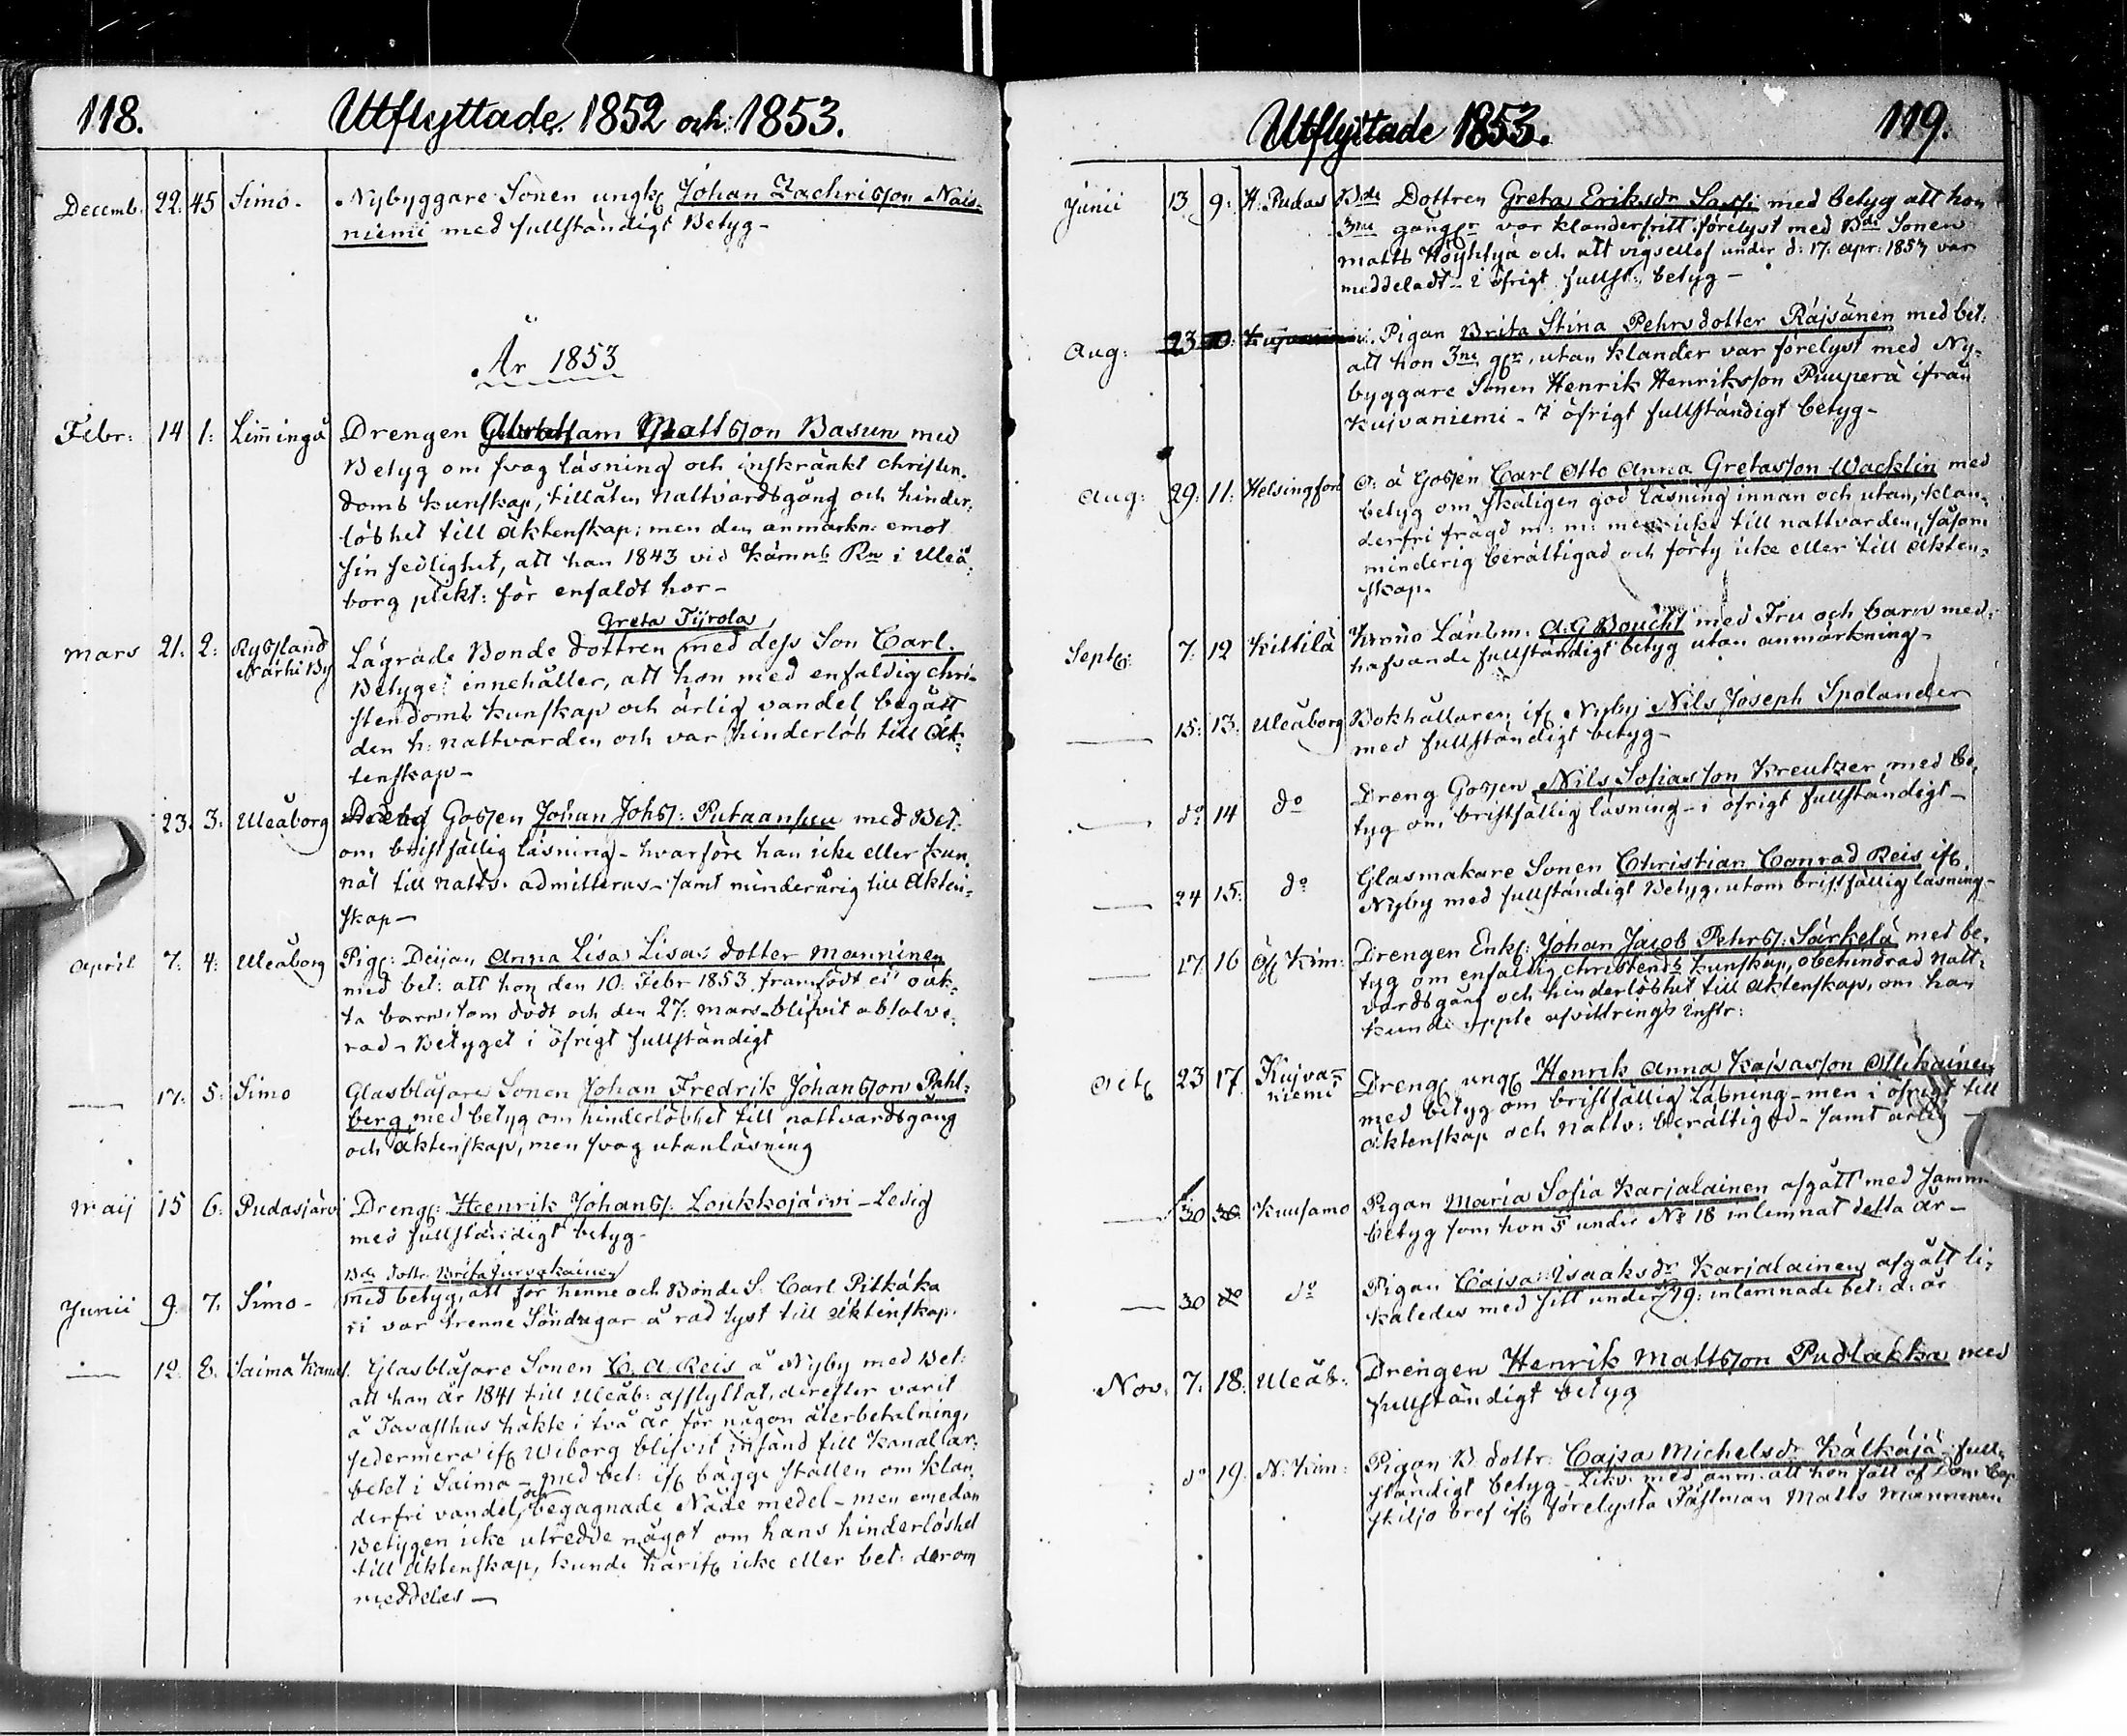 118. Utflyttade. 1852 och 1853.
Decemb. 22. 45 Simo. Nybyggare Sonen ungk: Johan Zachrisson Nais-
niemi med fullständigt Betyg-
År 1853
Febr: 14 1: Limingå Drengen Mattsson Basun med
Betyg om svag läsning och inskränkt christen-
doms kunskap, tillåten nattvardsgång och hinder-
löshet till äktenskap; men den anmärkn: emot
sin sedlighet, att han 1843 vid Kämnb Rn i Uleå-
borg plikt: för enfaldt hor-
Greta Tyrola
Mars 21. 2. Ryssland Lägrade Bonde dottren med dess Son Carl.
Närhi By Betyget innehåller, att hon med enfaldig chri-
stendoms kunskap och ärlig vandel begått
den h: nattvarden och var hinderlös till äk-
tenskap-
23. 3. Uleåborg Gossen Johan Johs: Putaansuu med Bet:
om bristfällig läsning - hvarföre han icke eller kun-
nat till nattv. admitteras - samt minderårig till äkten-
skap-
April 7. 4. Uleåborg Pig: Dejan Anna Lisa Lisas dotter Manninen
med bet: att hon den 10. Febr 1853 framfödt et oäk-
ta barn, som dödt och den 27. mars blifvit absolve-
rad - Betyget i öfrigt fullständigt
— 17. 5. Simo Glasblåsare Sonen Johan Fredrik Johansson Pahl-
berg, med betyg om hinderlöshet till nattvardsgång
och äktenskap, men svag utanläsning
Maij 15 6. Pudasjärvi Dreng: Henrik Johans: Loukkojärvi - Ledig
med fullständigt betyg-
Bde dottr. Brita Jurvakainen
Junii 9. 7. Simo - med betyg, att för henne och Bonde S. Carl Pitkäkä
ri var trenne Söndagar å rad lyst till äktenskap.
— 12. 8. Saima Kanal. Glasblåsare Sonen C. A. Reis å Nyby med Bet:
att han år 1841 till Uleåb: afflyttat, derefter varit
å Tavasthus häkte i två år för någon återbetalning,
sedermera if: Wiborg blifvit insänd till Kanal ar-
betet i Saima - med bet: if: bägge ställen om klan-
derfri vandel och begagnade Nåde medel - men emedan
Betygen icke utredde något om hans hinderlöshet
till äktenskap, kunde härif: icke eller bet: derom
meddelas-
Utflyttade 1853. 119.
Junii 13 9. H. Pudas Bde Dottren Greta Eriksdr Sassi med betyg att hon
3ne gånger var klanderfritt förelyst med Bde Sonen
Matts Höyhtyä och att vigsel under d: 17. apr: 1853 var
meddeladt - i öfrigt fullst: betyg-
Aug: 23 10. Pigan Brita Stina Pehrsdotter Räisänen med bet:
att hon 3ne ggr, utan klander var förelyst med Ny-
byggare Sonen Henrik Henriksson Puuperä ifrån
Kuivaniemi - I öfrigt fullständigt betyg-
Aug: 29. 11. Helsingfors O: ä Gossen Carl Otto Anna Gretasson Wacklin med
betyg om skäligen god läsning innan och utan, klan-
derfri frägd m: m: men icke till nattvarden, såsom
minderig berättigad och förty icke eller till äkten-
skap.
Septb: 7. 12 Kittilä Krono Länsm. A. G. Boucht med Fru och barn med-
hafvande fullständigt betyg utan anmärkning-
— 15. 13. Uleåborg Bokhållaren if: Nyby Nils Joseph Spolander
med fullständigt betyg-
— do 14 do Dreng Gossen Nils Sofiasson Kreutzer med be-
tyg om bristfällig läsning - i öfrigt fullständigt-
— 24 15. do Glasmakare Sonen Christian Conrad Reis if:
Nyby med fullständigt Betyg, utom bristfällig läsning-
— 27 16 Öf: Kim: Drengen Enkl: Johan Jacob Pehrs: Särkelä med be-
tyg om enfaldig christends kunskap, obehindrad natt-
vardsgång och hinderlöshet till äktenskap, om han
kunde uppte afvittrings instr:
Octb 23 17. Kuiva- Dreng: ung: Henrik Anna Kajsasson Ollikainen
niemi med betyg om bristfällig läsning - men i öfrigt till
äktenskap och nattv: berättigad - samt ärlig -
— 30 Kuusamo Pigan Maria Sofia Karjalainen afgått med samma
betyg som hon under No 18 inlemnat detta år-
— 30 do Pigan Cajsa Isaaksdr Karjalainen afgått li-
kaledes med sitt under 19. inlemnade bet: d: år
Nov. 7. 18. Uleåb. Drengen Henrik Mattsson Pudlakka med
fullständigt betyg
do 19. N. Kim: Pigan B. dottr: Cajsa Michelsdr Kälkäjä - full-
ständigt betyg - likv. med anm. att hon fått af Dom Cap
skiljo bref if: förelysta Fästman Matts Manninen